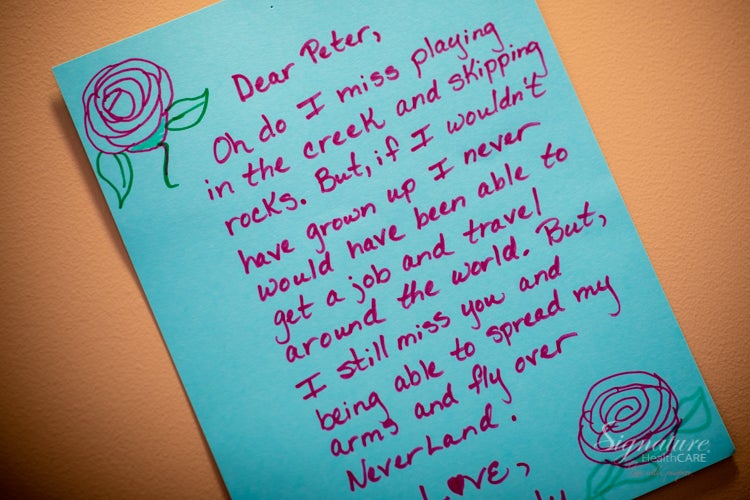 Dear Peter,
Oh do I miss playing
in the creek and skipping
rocks. But, if I wouldn't
have grown up I never
would have been able to
get a job and travel
around the world. But,
I still miss you and
being able to spread my
arms and fly over
NeverLand.
Love,
Signature
HealthCARE